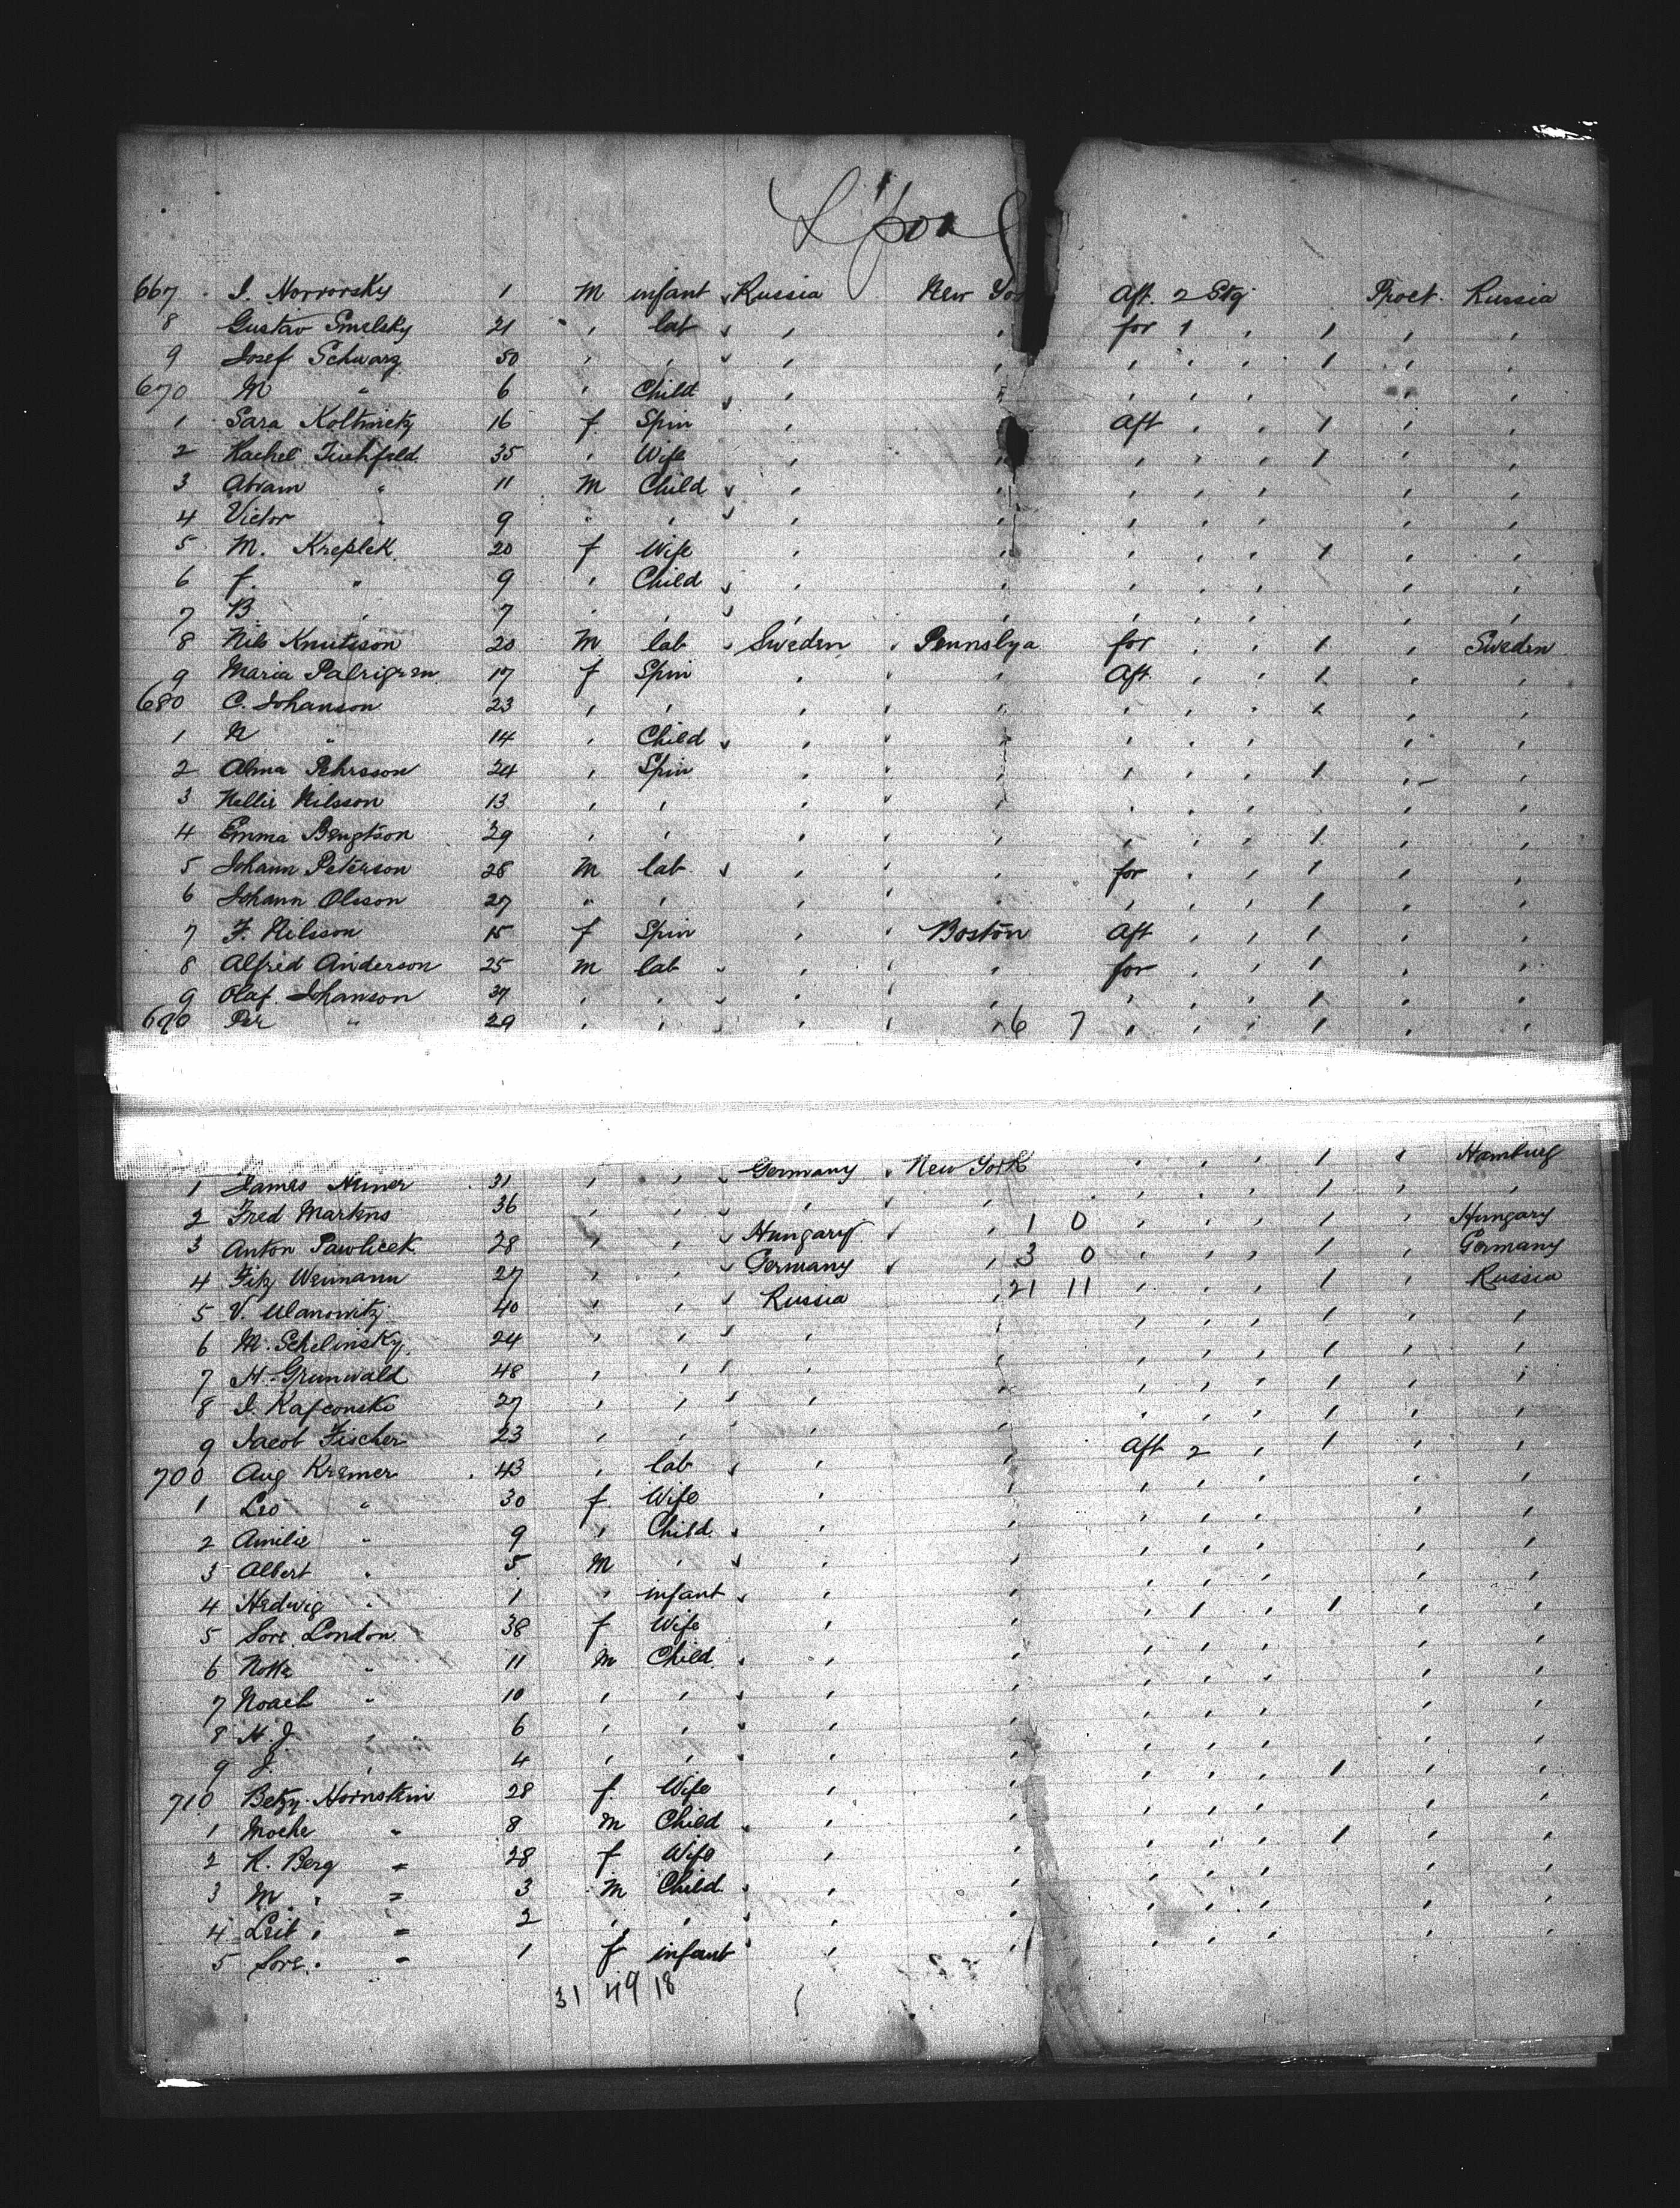 L'pool
667 I. Norrorsky 1 M infant Russia New Yo Aft. 2 Stg Proct. Russia
8 Gustav Smelsky 21 " lab " " for 1 " 1 " "
9 Josef Schwarz 50 " " " " " " " 1 " "
670 M " 6 " Child " " " " " " "
1 Sara Koltnietz 16 f Spin " " Aft " " 1 " "
2 Rachel Tuchfeld 35 " Wife " " " " " 1 " "
3 Abram " 11 M Child " " " " " " "
4 Victor " 9 " " " " " " " " "
5 M. Kreplek 20 f Wife " " " " " 1 " "
6 f. " 9 " Child " " " " " " "
7 B " 7 " " " " " " " " "
8 Nils Knutsson 20 M lab Sweden Pennslya for " " 1 " Sweden
9 Maria Palrigren 17 f Spin " " Aft " " 1 " "
680 C. Johanson 23 " " " " " " " 1 " "
1 N " 14 " Child " " " " " " "
2 Alma Pehrsson 24 " Spin " " " " " 1 " "
3 Nellie Nilsson 13 " " " " " " " " "
4 Emma Bengtson 29 " " " " " " " 1 " "
5 Johann Peterson 28 M lab " " for " " 1 " "
6 Johann Olsson 27 " " " " " " " 1 " "
7 F. Nilsson 15 f Spin " Boston Aft " " 1 " "
8 Alfred Anderson 25 M lab " " for " " 1 " "
9 Olaf Johanson 37 " " " " " " " 1 " "
690 Per " 29 " " " " 6 7 " " " 1 " "
1 James Neiner 31 " " Germany New York " " " 1 " Hamburg
2 Fred Martens 36 " " " " " " " 1 " "
3 Anton Pawlicek 28 " " Hungary " 1 0 " " " 1 " Hungary
4 Fitz Weinann 27 " " Germany " 3 0 " " " 1 " Germany
5 V. Ulanowitz 40 " " Russia " 21 11 " " " 1 " Russia
6 M. Schelinsky 24 " " " " " " " 1 " "
7 H. Grunwald 48 " " " " " " " 1 " "
8 I. Kafconski 27 " " " " " " " 1 " "
9 Jacob Fischer 23 " " " " " " " 1 " "
700 Aug Kremer 43 " lab " " Aft 2 " 1 " "
1 Leo " 30 f Wife " " " " " " "
2 Amilie " 9 " Child " " " " " " "
3 Albert " 5 M " " " " " " " "
4 Hedwig " 1 " infant " " " " " " "
5 Sore London 38 f Wife " " " 1 " 1 " "
6 Notte " 11 M Child " " " " " " "
7 Noach " 10 " " " " " " " " "
8 H. J. " 6 " " " " " " " " "
9 J. " 4 " " " " " " " " "
710 Betzy Hornstein 28 f Wife " " " " " 1 " "
1 Moche " 8 M Child " " " " " " "
2 R. Berg " 28 f Wife " " " " " 1 " "
3 M. " " 3 M Child " " " " " " "
4 Leib " " 2 " " " " " " " " "
5 Sore " " 1 f infant " " " " " " "
31 49 18